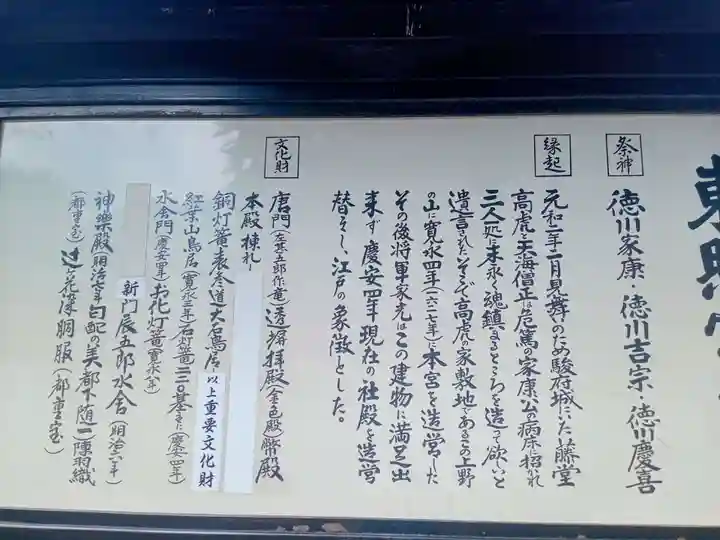 東照
祭神
徳川家康・徳川吉宗・徳川慶喜
縁起
元和二年二月見舞いのため駿府城にいた藤堂
高虎と天海僧正は危篤の家康公の病床に招かれ
三人一処に末永く魂鎮まるところを造って欲しいと
遺言された そこで高虎の家敷地であるこの上野
の山に寛永四年(一六二七年)に本宮を造営した
その後将軍家光はこの建物に満足出
来ず慶安四年現在の社殿を造営
替えし、江戸の象徴とした。
文化財
唐門(左甚五郎作竜)透塀拝殿(金色殿)幣殿
本殿棟札
銅灯篭表参道大石鳥居
以上重要文化財
紅葉山鳥居(寛永三年)石灯篭二三〇基(慶安四年)
水舎門(慶安四年)お化灯篭(寛永八年)
新門辰五郎水舎(明治六年)
神樂殿(明治七年)勾配の美都下随一 陣羽織
(都重宝)辻が花染胴服(都重宝)